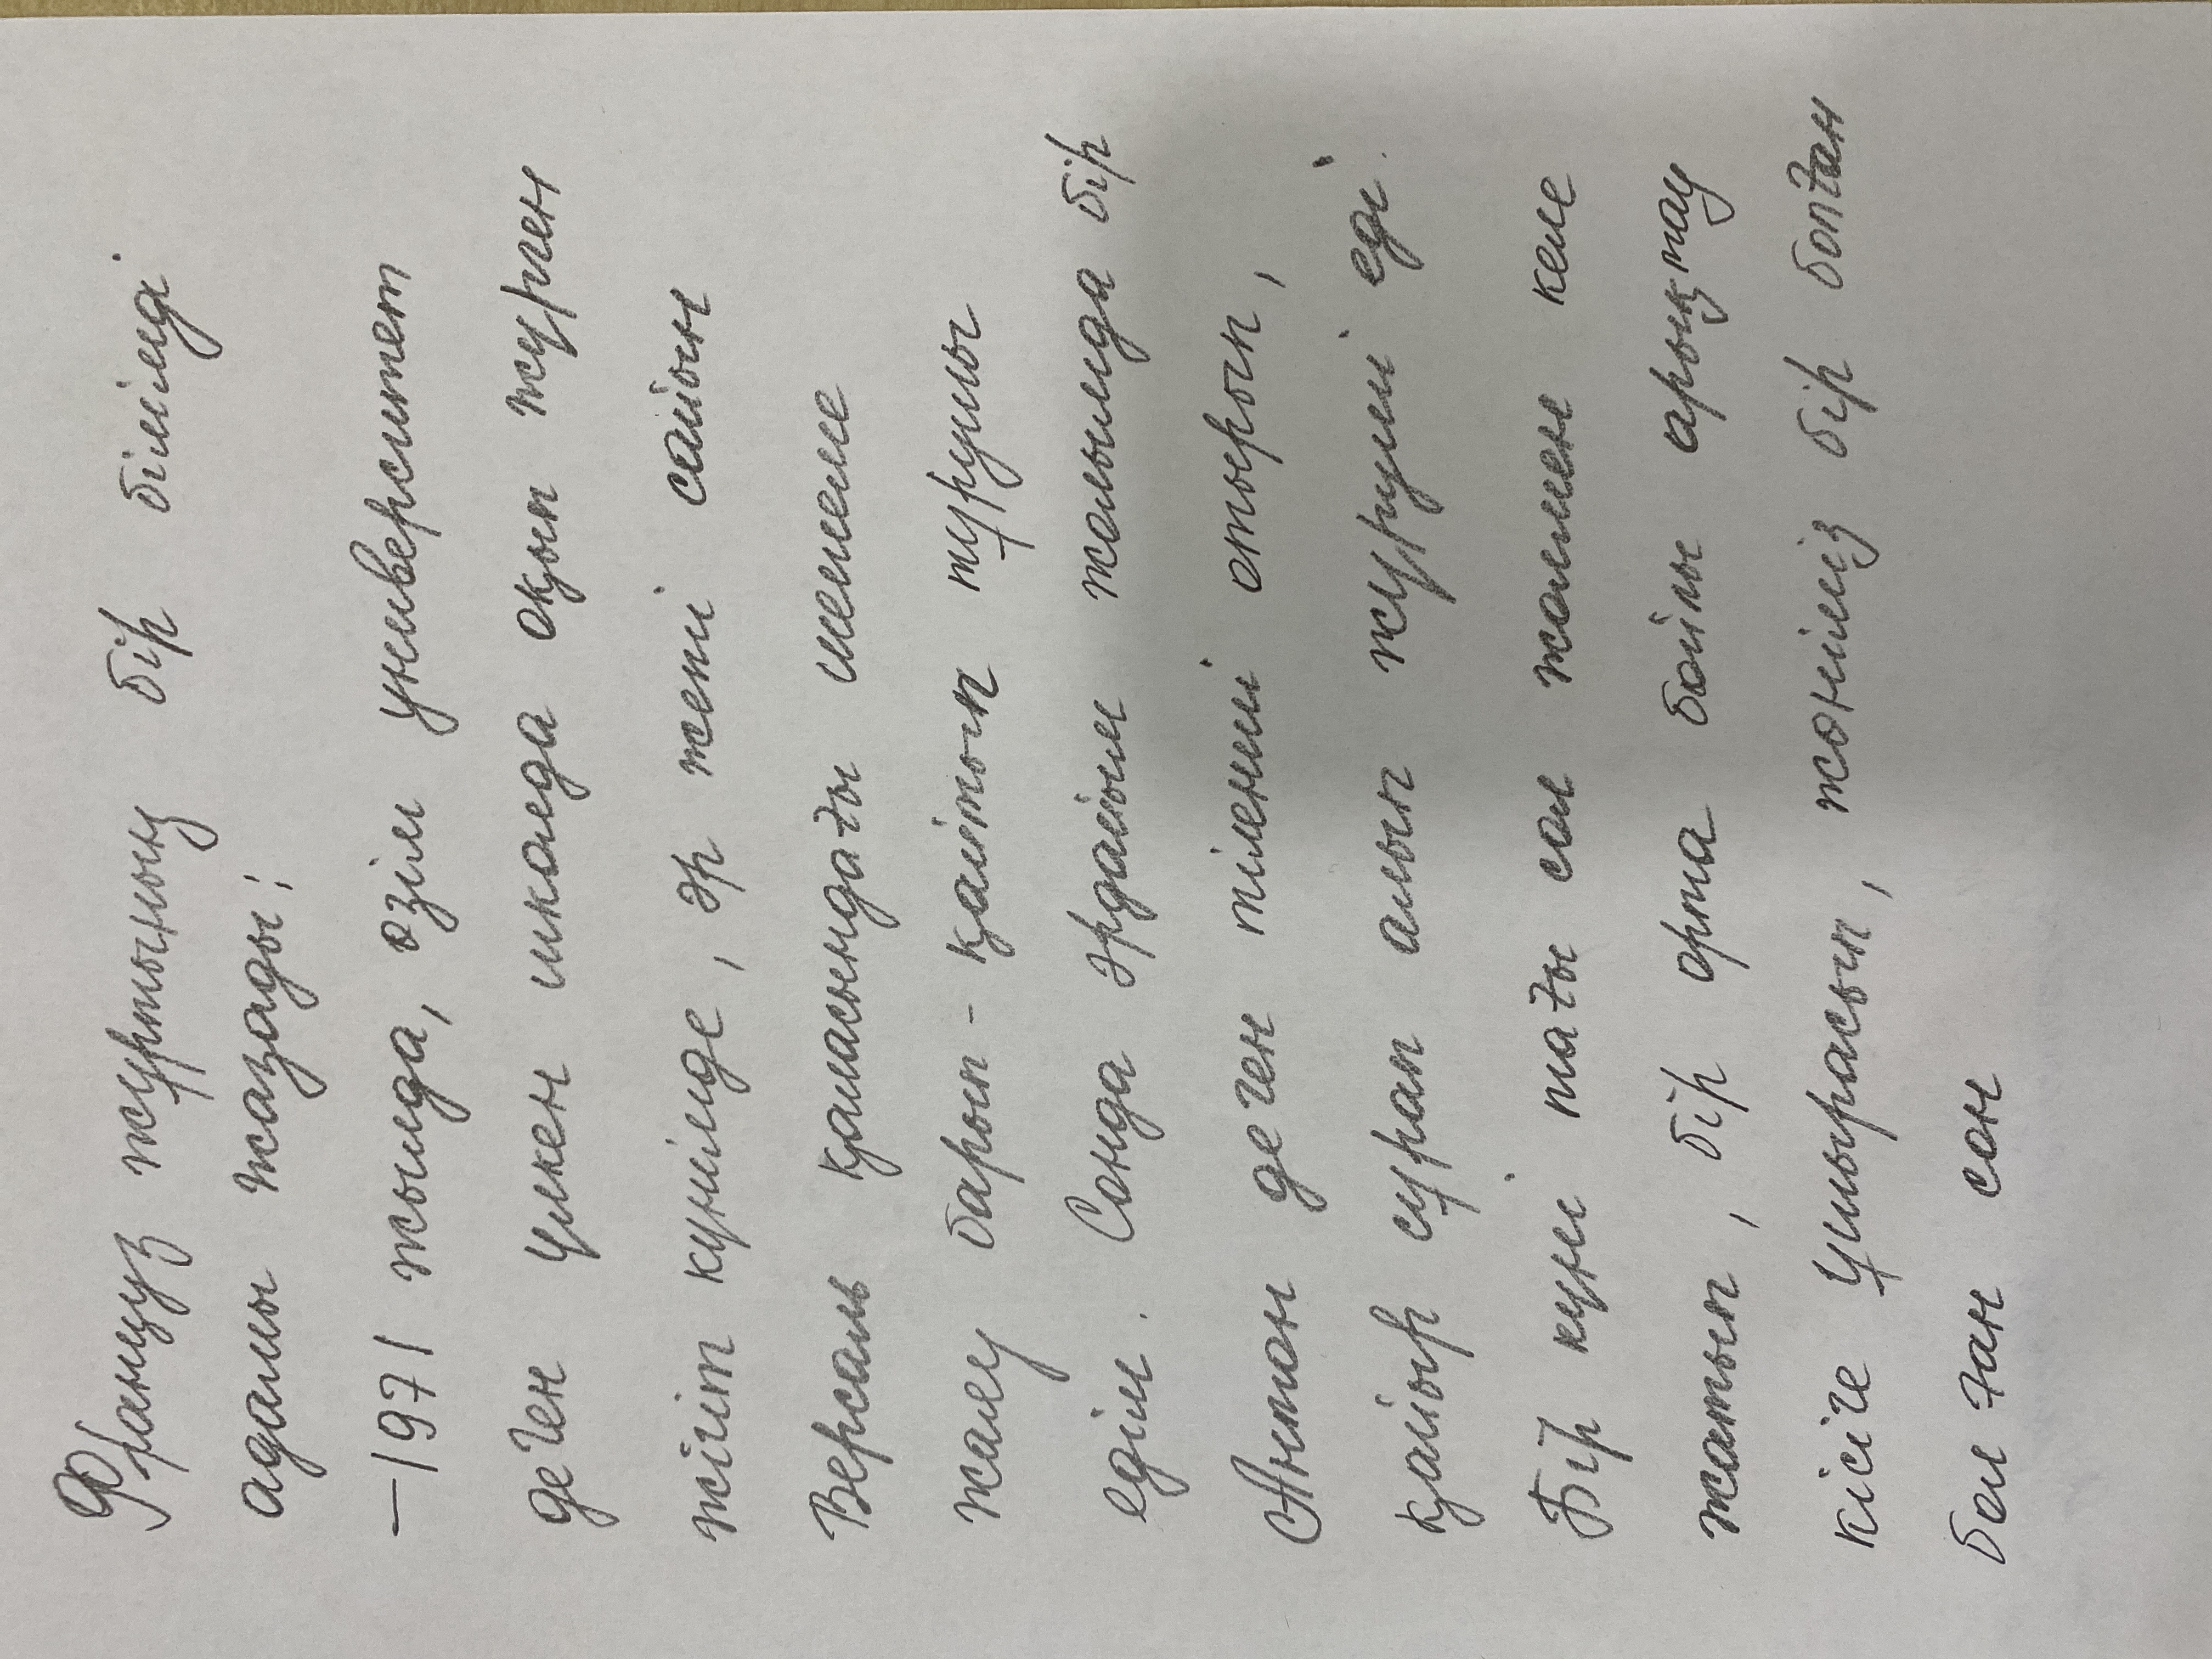 Француз жұртының бір білімді
адамы жазады:
—1971 жылда, өзім университет
деген үлкен школда оқып жүрген
жігіт күнімде, әр жеті сайын
Версаль қаласындағы шешеме
жаяу барып - қайтып тұрушы
едім. Сонда әрдайым жолымда бір
Антон деген тіленші отырып,
қайыр сұрап алып жүруші еді.
Бір күні тағы сол жолмен келе
жатып, бір орта бойлы арықтау
кісіге ұшырасып, жөніміз бір болған
болған сон